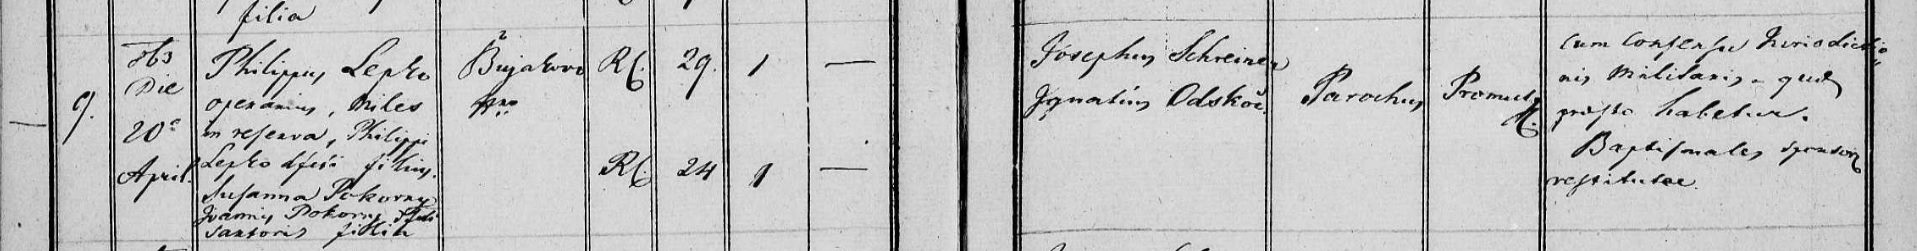 filia
9.
Die
20ª
April.
Philippus Lepko
operarius, Miles
in reserva, Philippi
Lepko filius.
Susanna Pokorny
Joannis Pokorny
sartoris filia
Bujakovo
RC. 29. 1 —
RC. 24 1 —
Josephus Schreiner
Ignatius Odskoč.
Parochus
Promulg
cum consensu Jurisdictio
nis Militaris - quod
praesto habetur.
Baptismales sponsor
restitutae.